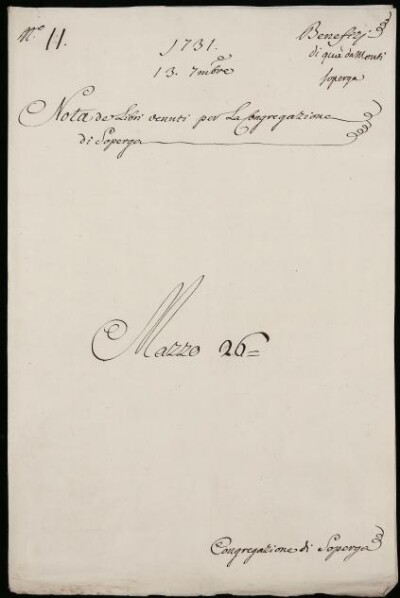 N.º 11.
1731.
13. 7mbre
Benefizj
di quà da Monti
Soperga
Nota de Libri venuti per La Congregazione
di Soperga
Mazzo 26=
Congregazione di Soperga